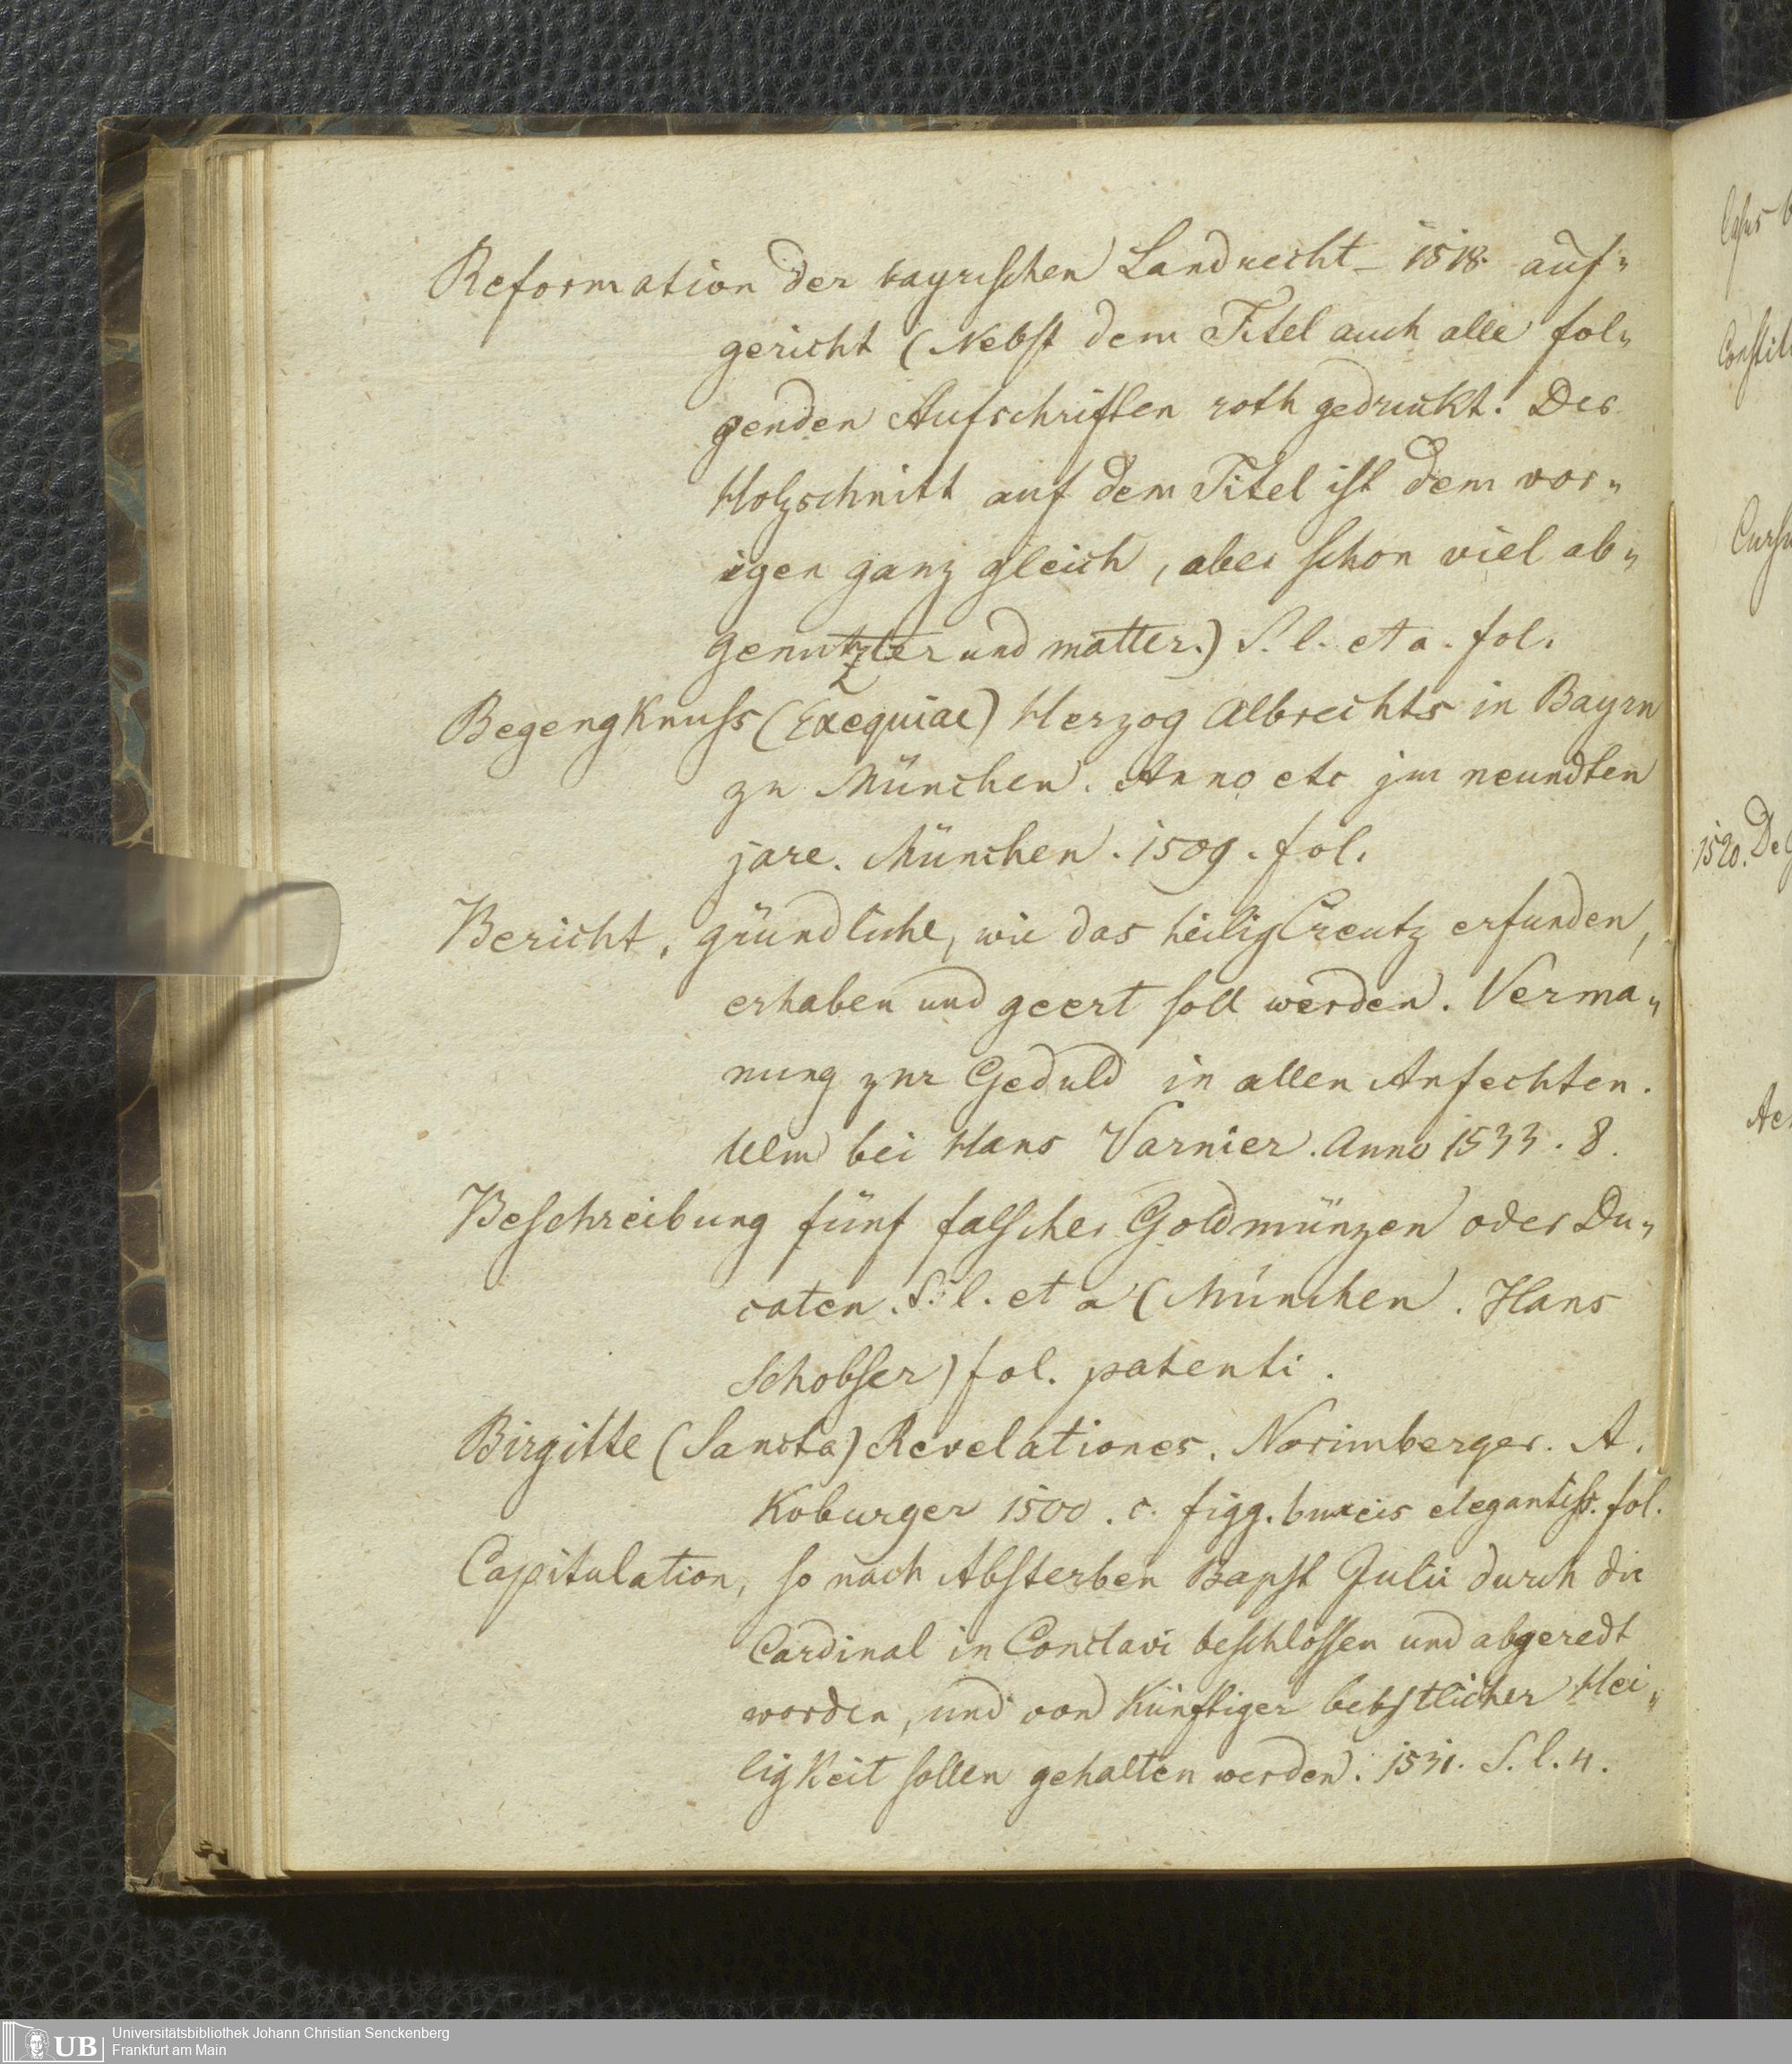 Reformation der bayrischen Landrecht – 1518. auf„
gericht (Nebst dem Titel auch alle fol„
genden Aufschriften roth gedruckt. Der
Holzschnitt auf dem Titel ist dem vor„
igen ganz gleich, aber schon viel ab„
genutzter und matter.) S. l. et a. fol.
Begengknuss (Exequiae) Herzog Albrechts in Bayrn
zu München. Anno etc jm neundten
jare. München. 1509. fol.
Bericht, gründliche, wie das heilig Creutz erfunden,
erhaben und geert soll werden. Verma„
nung zur Geduld in allen Anfechten.
Ulm bei Hans Varnier. Anno 1533. 8.
Beschreibung fünf falscher Goldmünzen oder Du„
caten. S. l. et a (München. Hans
Schobser) fol. patenti.
Birgitte (Sancta) Revelationes. Norimberger. A.
Koburger 1500. c. figg. buxeis elegantiss. fol.
Capitulation, so nach Absterben Bapst Julii durch die
Cardinal in Conclavi beschlossen und abgeredt
worden, und von künftiger bebstlicher Hei„
ligkeit sollen gehalten werden. 1531. S. l. 4.
1520.
UB
Universitätsbibliothek Johann Christian Senckenberg
Frankfurt am Main